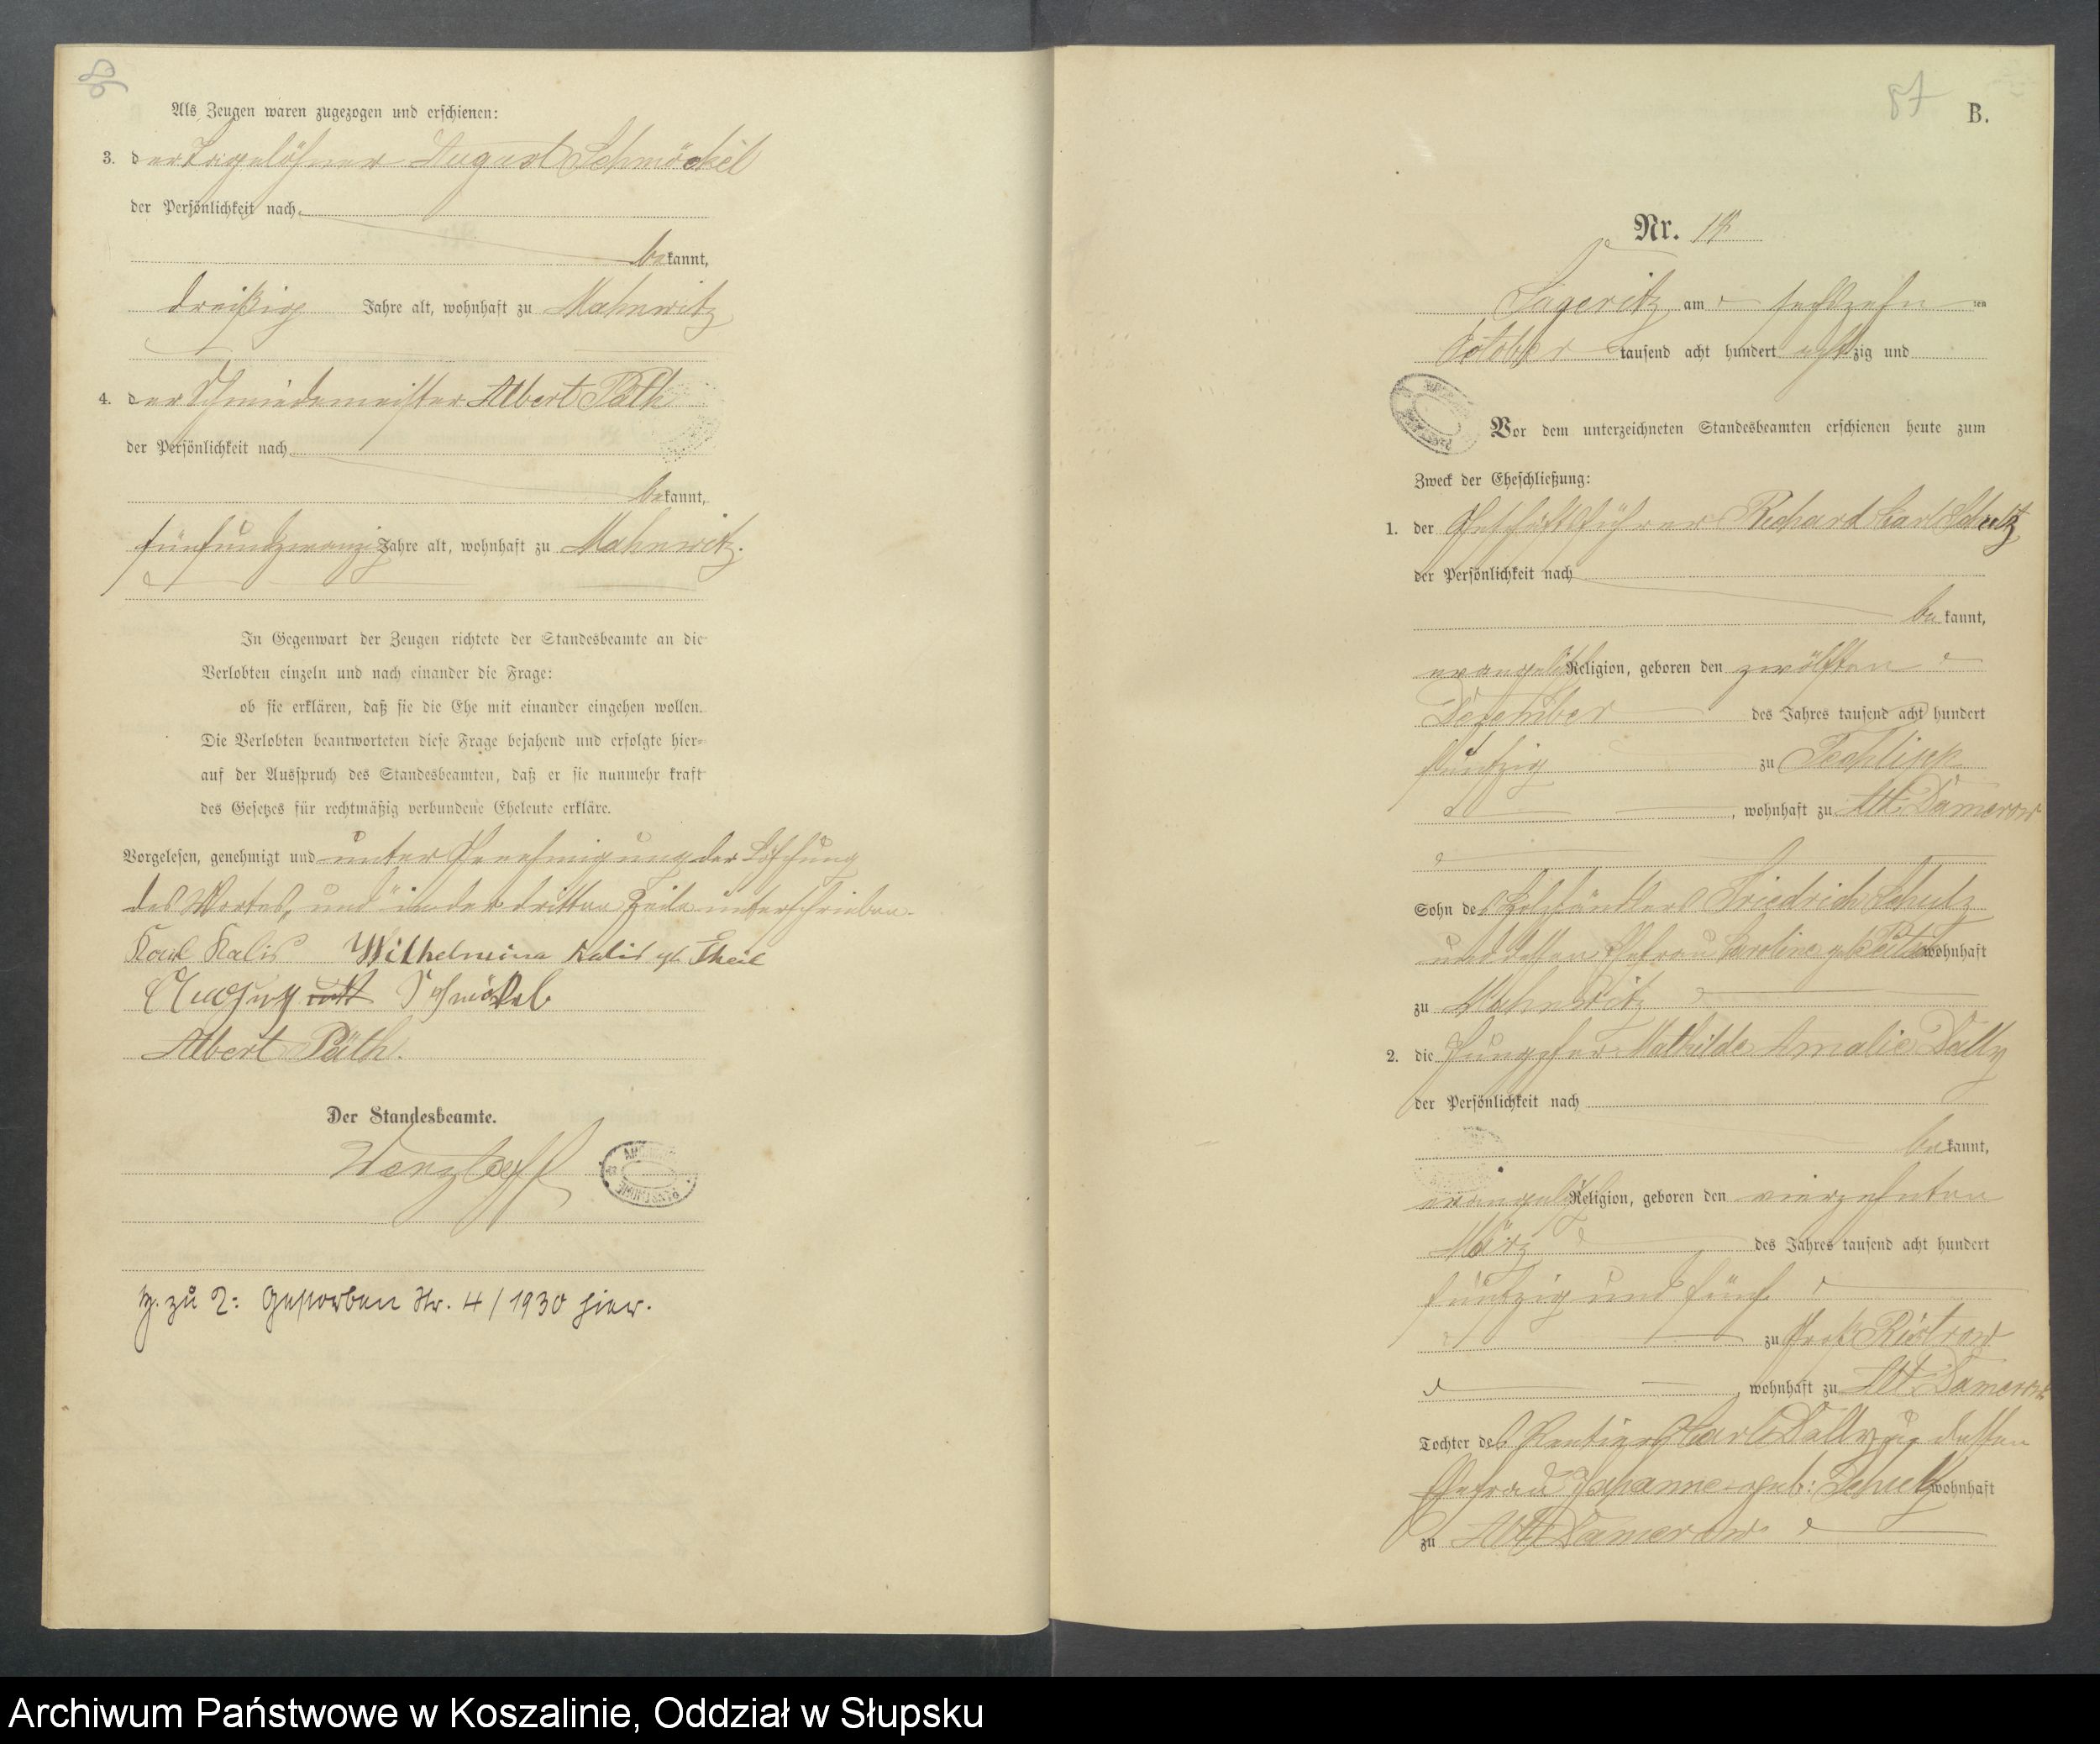 Als Zeugen waren zugezogen und erschienen:
3. der Tagelöhner August Schmöckel
der Persönlichkeit nach
bekannt,
dreißig Jahre alt, wohnhaft zu Mahnwitz
4. der Schmiedemeister Albert Päth
der Persönlichkeit nach
bekannt,
fünfundzwanzig Jahre alt, wohnhaft zu Mahnwitz.
In Gegenwart der Zeugen richtete der Standesbeamte an die
Verlobten einzeln und nach einander die Frage:
ob sie erklären, daß sie die Ehe mit einander eingehen wollen.
Die Verlobten beantworteten diese Frage bejahend und erfolgte hier-
auf der Ausspruch des Standesbeamten, daß er sie nunmehr kraft
des Gesetzes für rechtmäßig verbundene Eheleute erkläre.
Vorgelesen, genehmigt und unter Genehmigung der Löschung
des Wortes „und“ in der dritten Zeile unterschrieben.
Karl Kalis Wilhelmina Kalis gb Theil
August Schmökel
Albert Päth.
Der Standesbeamte.
B. zu 2: Gestorben Nr. 4/1930 hier.
87
B.
Nr. 14
Sageritz am sechszehnten
October tausend acht hundert achtzig und
Vor dem unterzeichneten Standesbeamten erschienen heute zum
Zweck der Eheschließung:
1. der Geschäftsführer Richard Carl Schulz
der Persönlichkeit nach
bekannt,
evangelisch Religion, geboren den zwölften
Dezember des Jahres tausend acht hundert
fünfzig zu
, wohnhaft zu Alt Damerow
Sohn des Holzhändlers Friedrich Schulz
und dessen Ehefrau Caroline geb. wohnhaft
zu Mahnwitz
2. die Jungfer Mathilde Amalie Dally
der Persönlichkeit nach
bekannt,
evangelisch Religion, geboren den vierzehnten
März des Jahres tausend acht hundert
fünfzig und fünf
zu Groß Ristow
wohnhaft zu Alt Damerow
Tochter des Rentiers Carl Dally u. dessen
Ehefrau Johanne geb: Schulz wohnhaft
zu Alt Damerow
Archiwum Państwowe w Koszalinie, Oddział w Słupsku